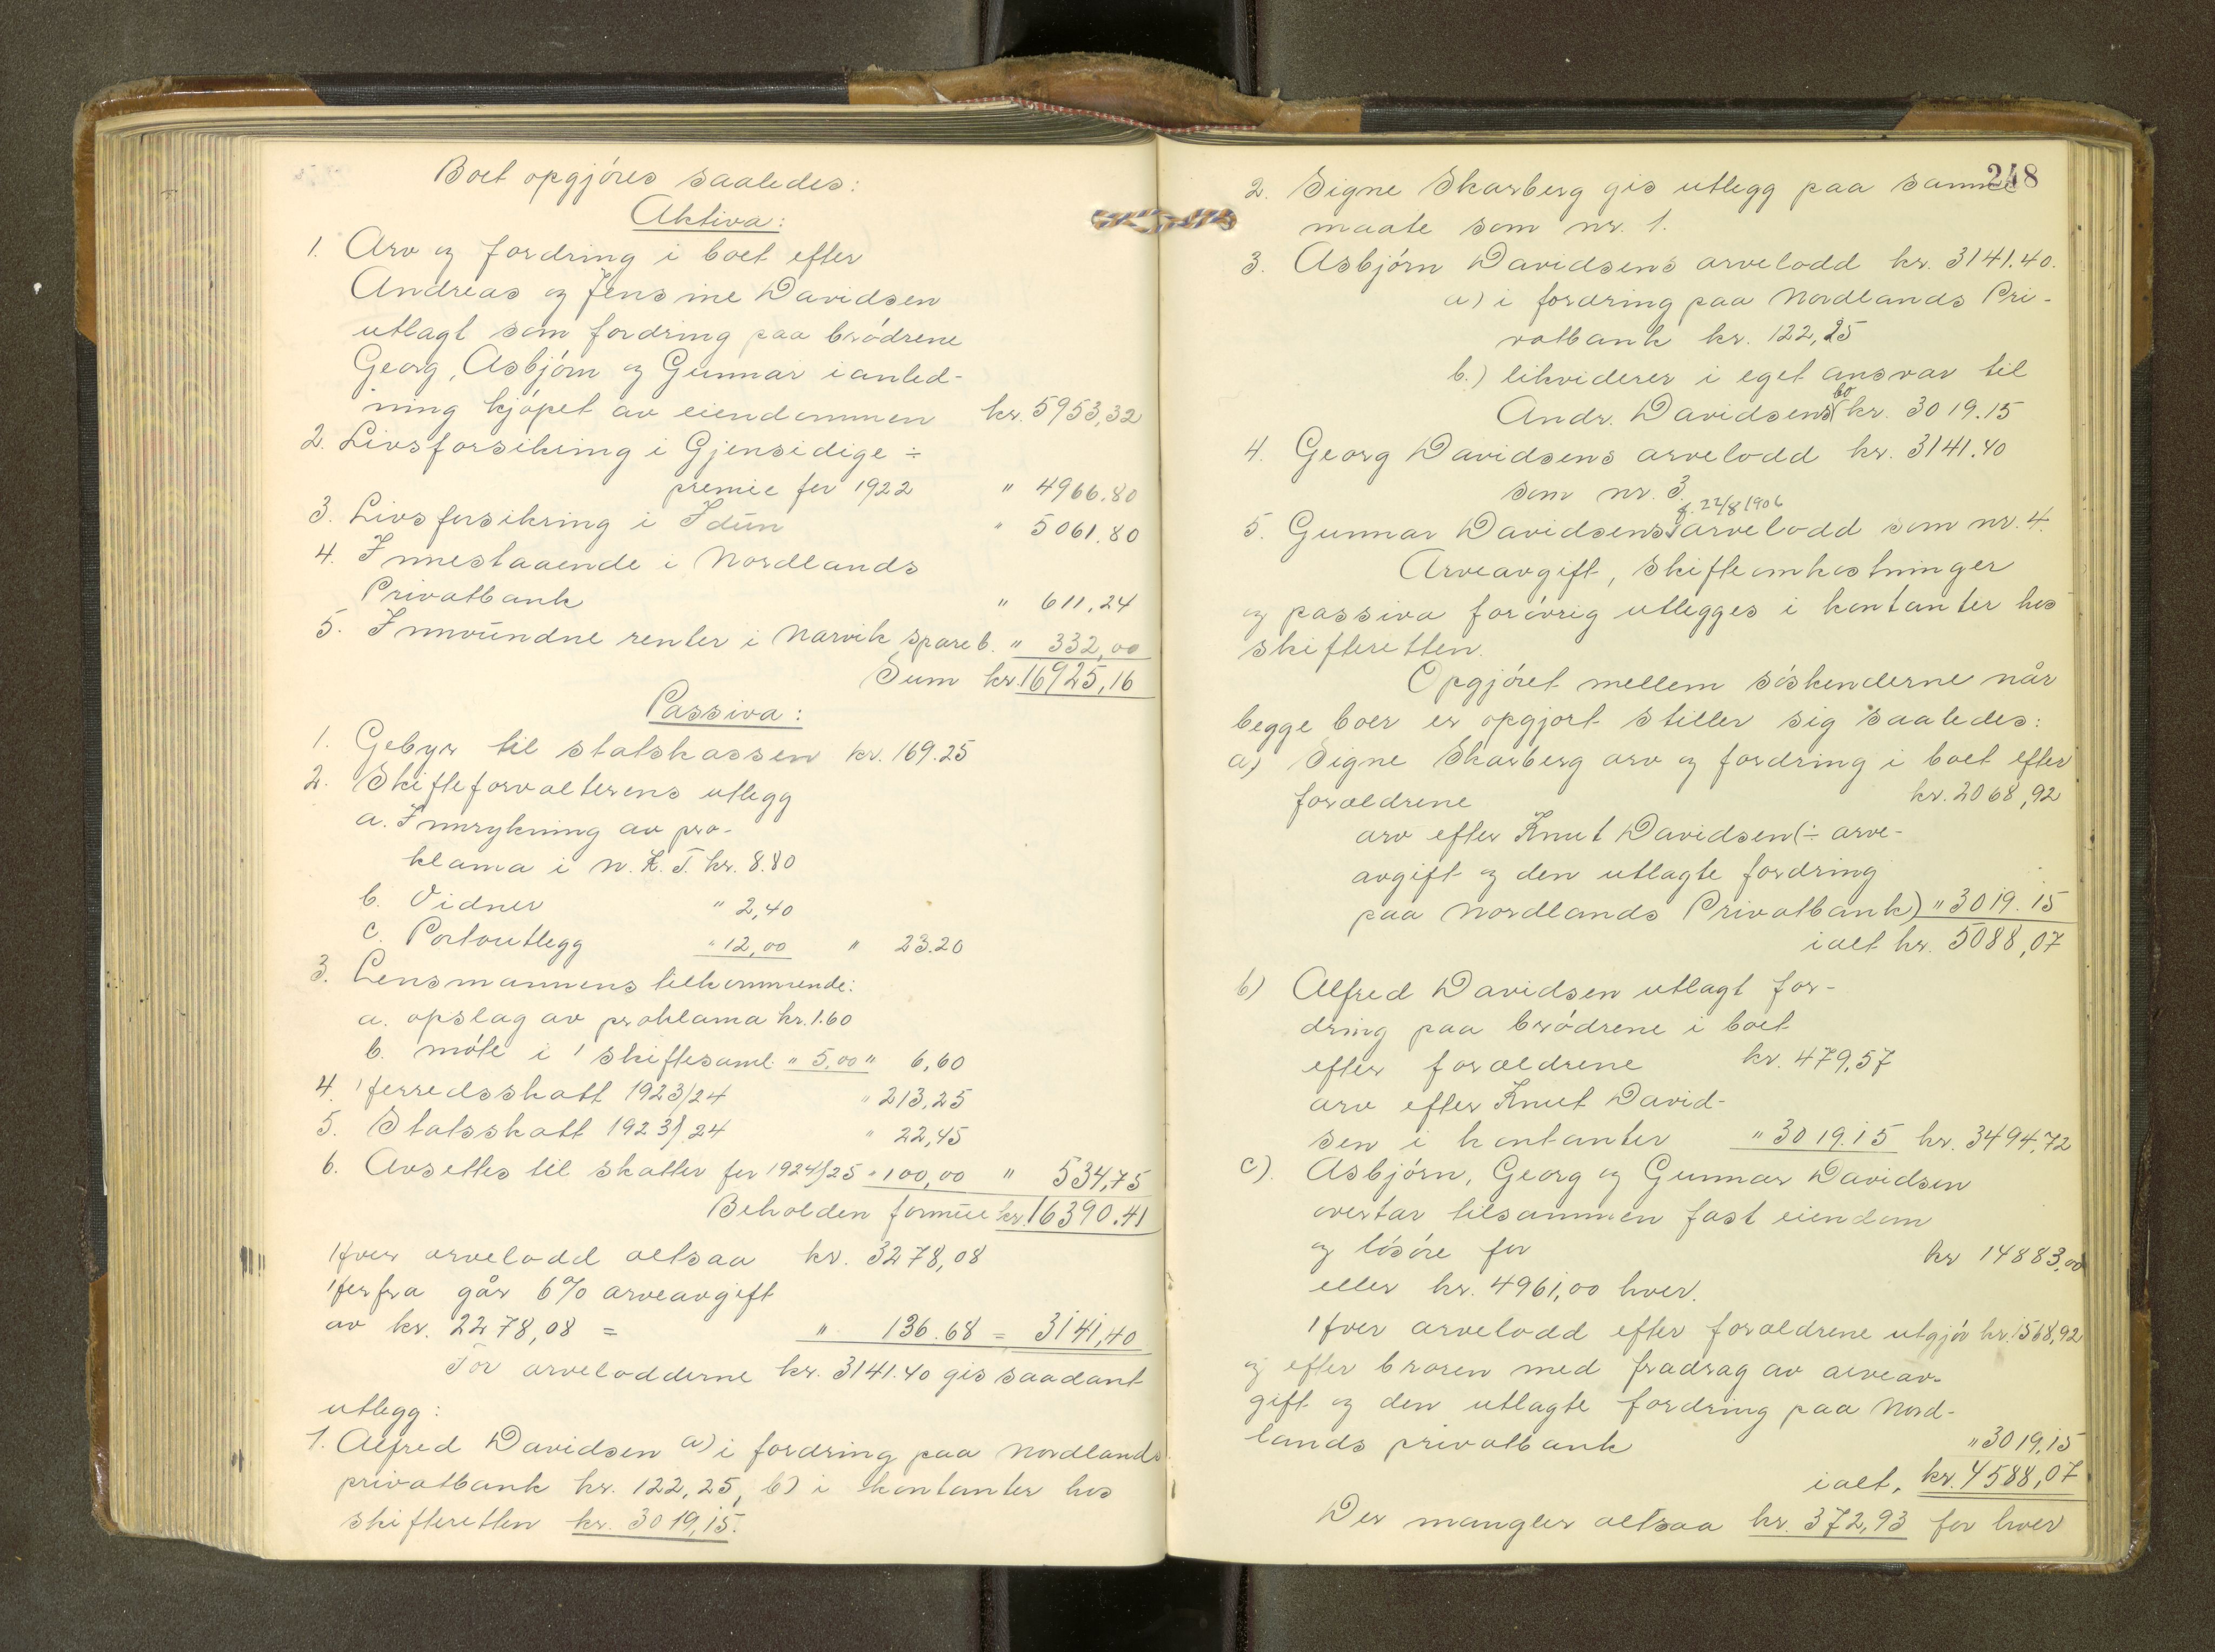 Boet opgjöres saaledes:
Aktiva:
1. Arv og fordring i boet efter
Andreas og Jensine Davidsen
utlagt som fordring paa brödrene
Georg, Asbjörn og Gunnar i anled-
ning kjöpet av eiendommen kr. 5953,32
2. Livsforsikring i Gjensidige ÷
premie for 1922 " 4966.80
3. Livsforsikring i Idun " 5061.80
4. Innestaaende i Nordlands
Privatbank " 611,24
5. Innvundne renter i Narvik spareb. " 332,00
Sum kr. 16925,16
Passiva:
1. Gebyr til statskassen kr. 169.25
2. Skifteforvalterens utlegg
a. Innrykning av pro-
klama i N. K. T. kr. 8.80
b. Vidner " 2,40
c. Portoutlegg " 12,00 " 23.20
3. Lensmannens tilkommende:
a. opslag av proklama kr. 1.60
b. möte i 1 skiftesaml. " 5,00 " 6,60
4. Herredsskatt 1923/24 " 213,25
5. Statsskatt 1923/24 " 22,45
6. Avsettes til skatter for 1924/25 " 100,00 " 534,75
Beholden formue kr. 16390.41
Hver arvelodd altsaa kr. 3278,08
Herfra går 6% arveavgift
av kr. 2278,08 = " 136.68 = 3141,40
For arveloddene kr. 3141.40 gis saadant
utlegg:
1. Alfred Davidsen a) i fordring paa Nordlands
privatbank kr. 122,25, b) i kontanter hos
skifteretten kr. 3019,15.
248
2. Signe Skarberg gis utlegg paa samme
maate som nr. 1.
3. Asbjörn Davidsens arvelodd kr. 3141.40.
a) i fordring paa Nordlands Pri-
vatbank kr. 122,25
b.) likviderer i eget ansvar til
Andr. Davidsens bo kr. 3019.15
4. Georg Davidsens arvelodd kr. 3141.40
som nr. 3.
f. 22/8 1906
5. Gunnar Davidsens arvelodd som nr. 4.
Arveavgift, skifteomkostninger
og passiva forövrig utlegges i kontanter hos
skifteretten.
Opgjöret mellem söskenderne når
begge boer er opgjort stiller sig saaledes:
a) Signe Skarberg arv og fordring i boet efter
foræeldrene kr. 2068,92
arv efter Knut Davidsen (÷ arve-
avgift og den utlagte fordring
paa Nordlands Privatbank) " 3019.15
ialt kr. 5088,07
b) Alfred Davidsen utlagt for-
dring paa brödrene i boet
efter foræeldrene kr. 479,57
arv efter Knut David-
sen i kontanter " 3019.15 kr. 3494,72
c). Asbjörn, Georg og Gunnar Davidsen
overtar tilsammen fast eiendom
og lösöre for kr 14883,00
eller kr. 4961,00 hver.
Hver arvelodd efter forældrene utgjör kr. 1568,92
og efter broren med fradrag av arveav-
gift og den utlagte fordring paa Nord-
lands privatbank " 3019,15
ialt, kr. 4588,07
Der mangler altsaa kr. 372,93 for hver